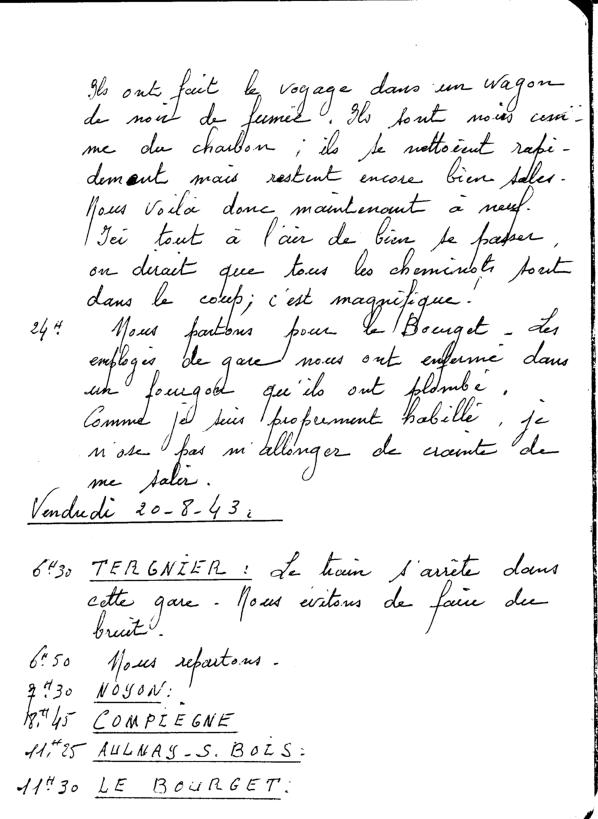 Ils ont fait le voyage dans un wagon
de noir de fumée. Ils sont noirs com-
me du charbon ; ils se nettoient rapi-
dement mais restent encore bien sales.
Nous voilà donc maintenant à neuf.
Ici tout à l'air de bien se passer,
on dirait que tous les cheminots sont
dans le coup; c'est magnifique!
24H Nous partons pour le Bourget - Les
employés de gare nous ont enfermé dans
un fourgon qu'ils ont plombé.
Comme je suis proprement habillé, je
n'ose pas m'allonger de crainte de
me salir.
Vendredi 20-8-43:
6H30 TERGNIER: Le train s'arrête dans
cette gare - Nous évitons de faire du
bruit.
6H50 Nous repartons.
7H30 NOYON:
8H45 COMPIEGNE
11H25 AULNAY-S. BOIS:
11H30 LE BOURGET: